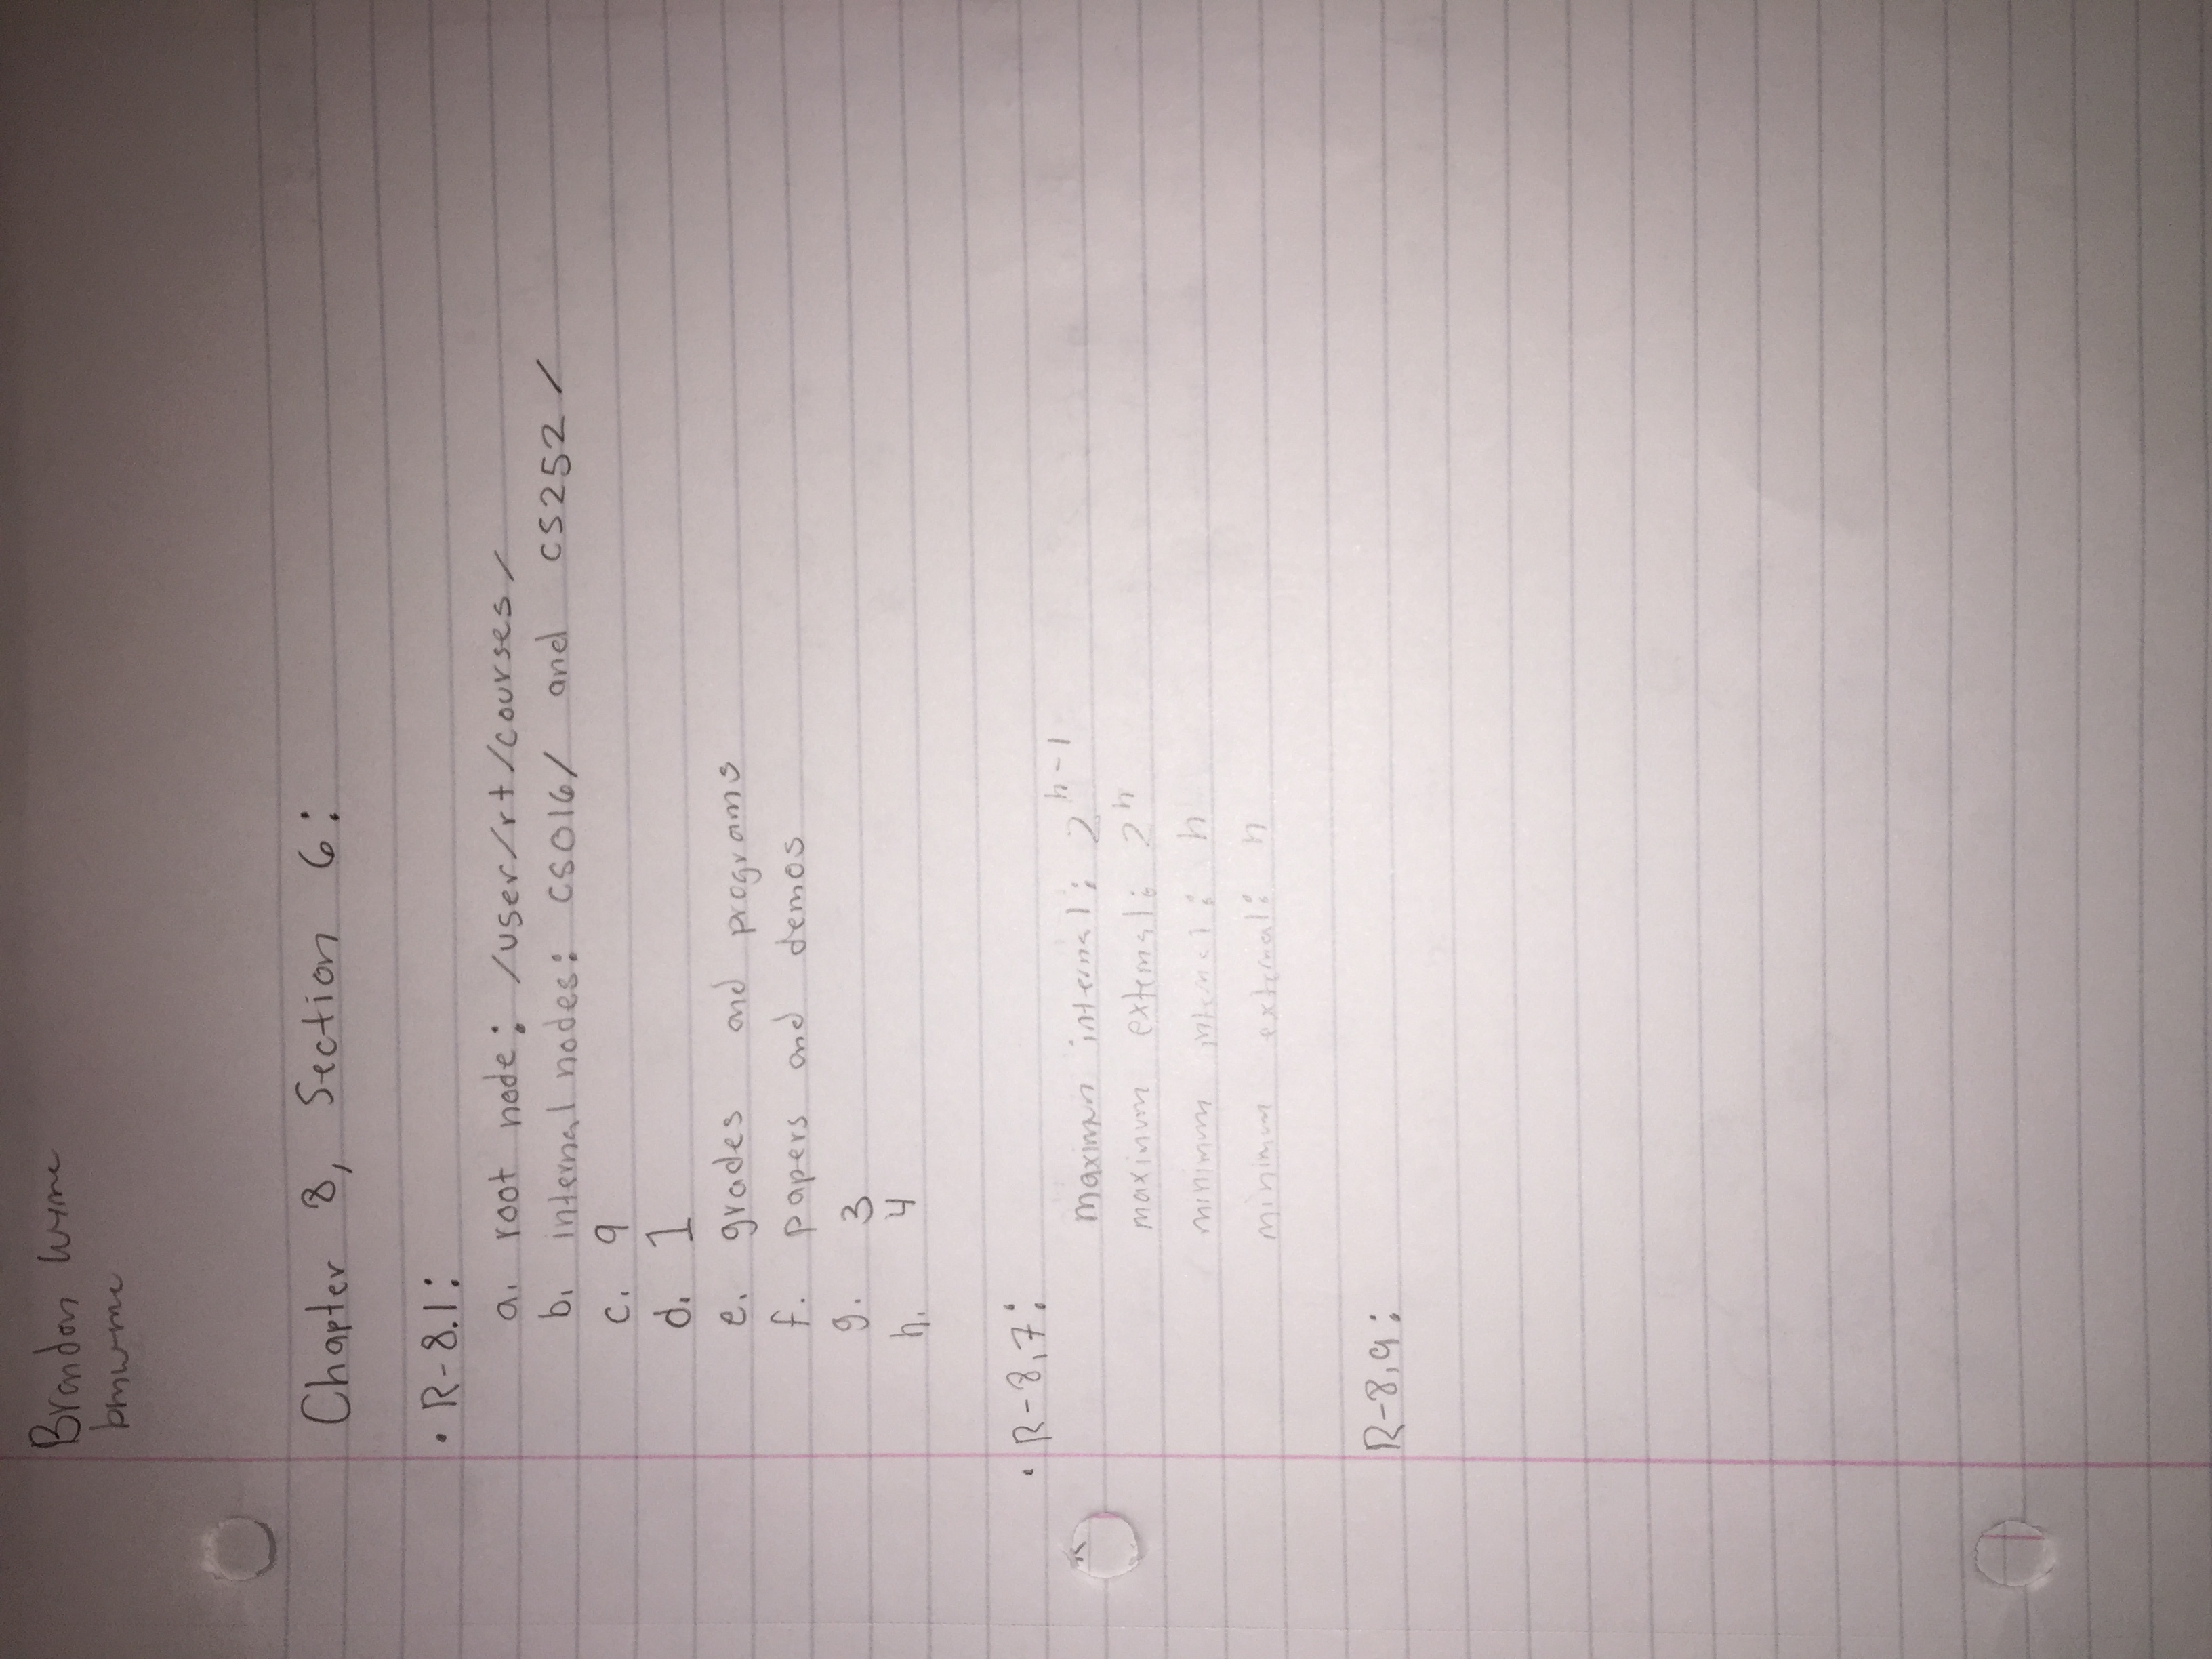 Brandon
Chapter 8, Section 6:
• R-8.1:
a. root node: /user/rt/courses/
b. internal nodes: CS016/ and CS252/
c. 9
d. 1
e. grades and programs
f. papers and demos
g. 3
h. 4
• R-8.7:
maximum internal: 2^h-1
maximum external: 2^h
minimum internal: h
minimum external: h
R-8.9: